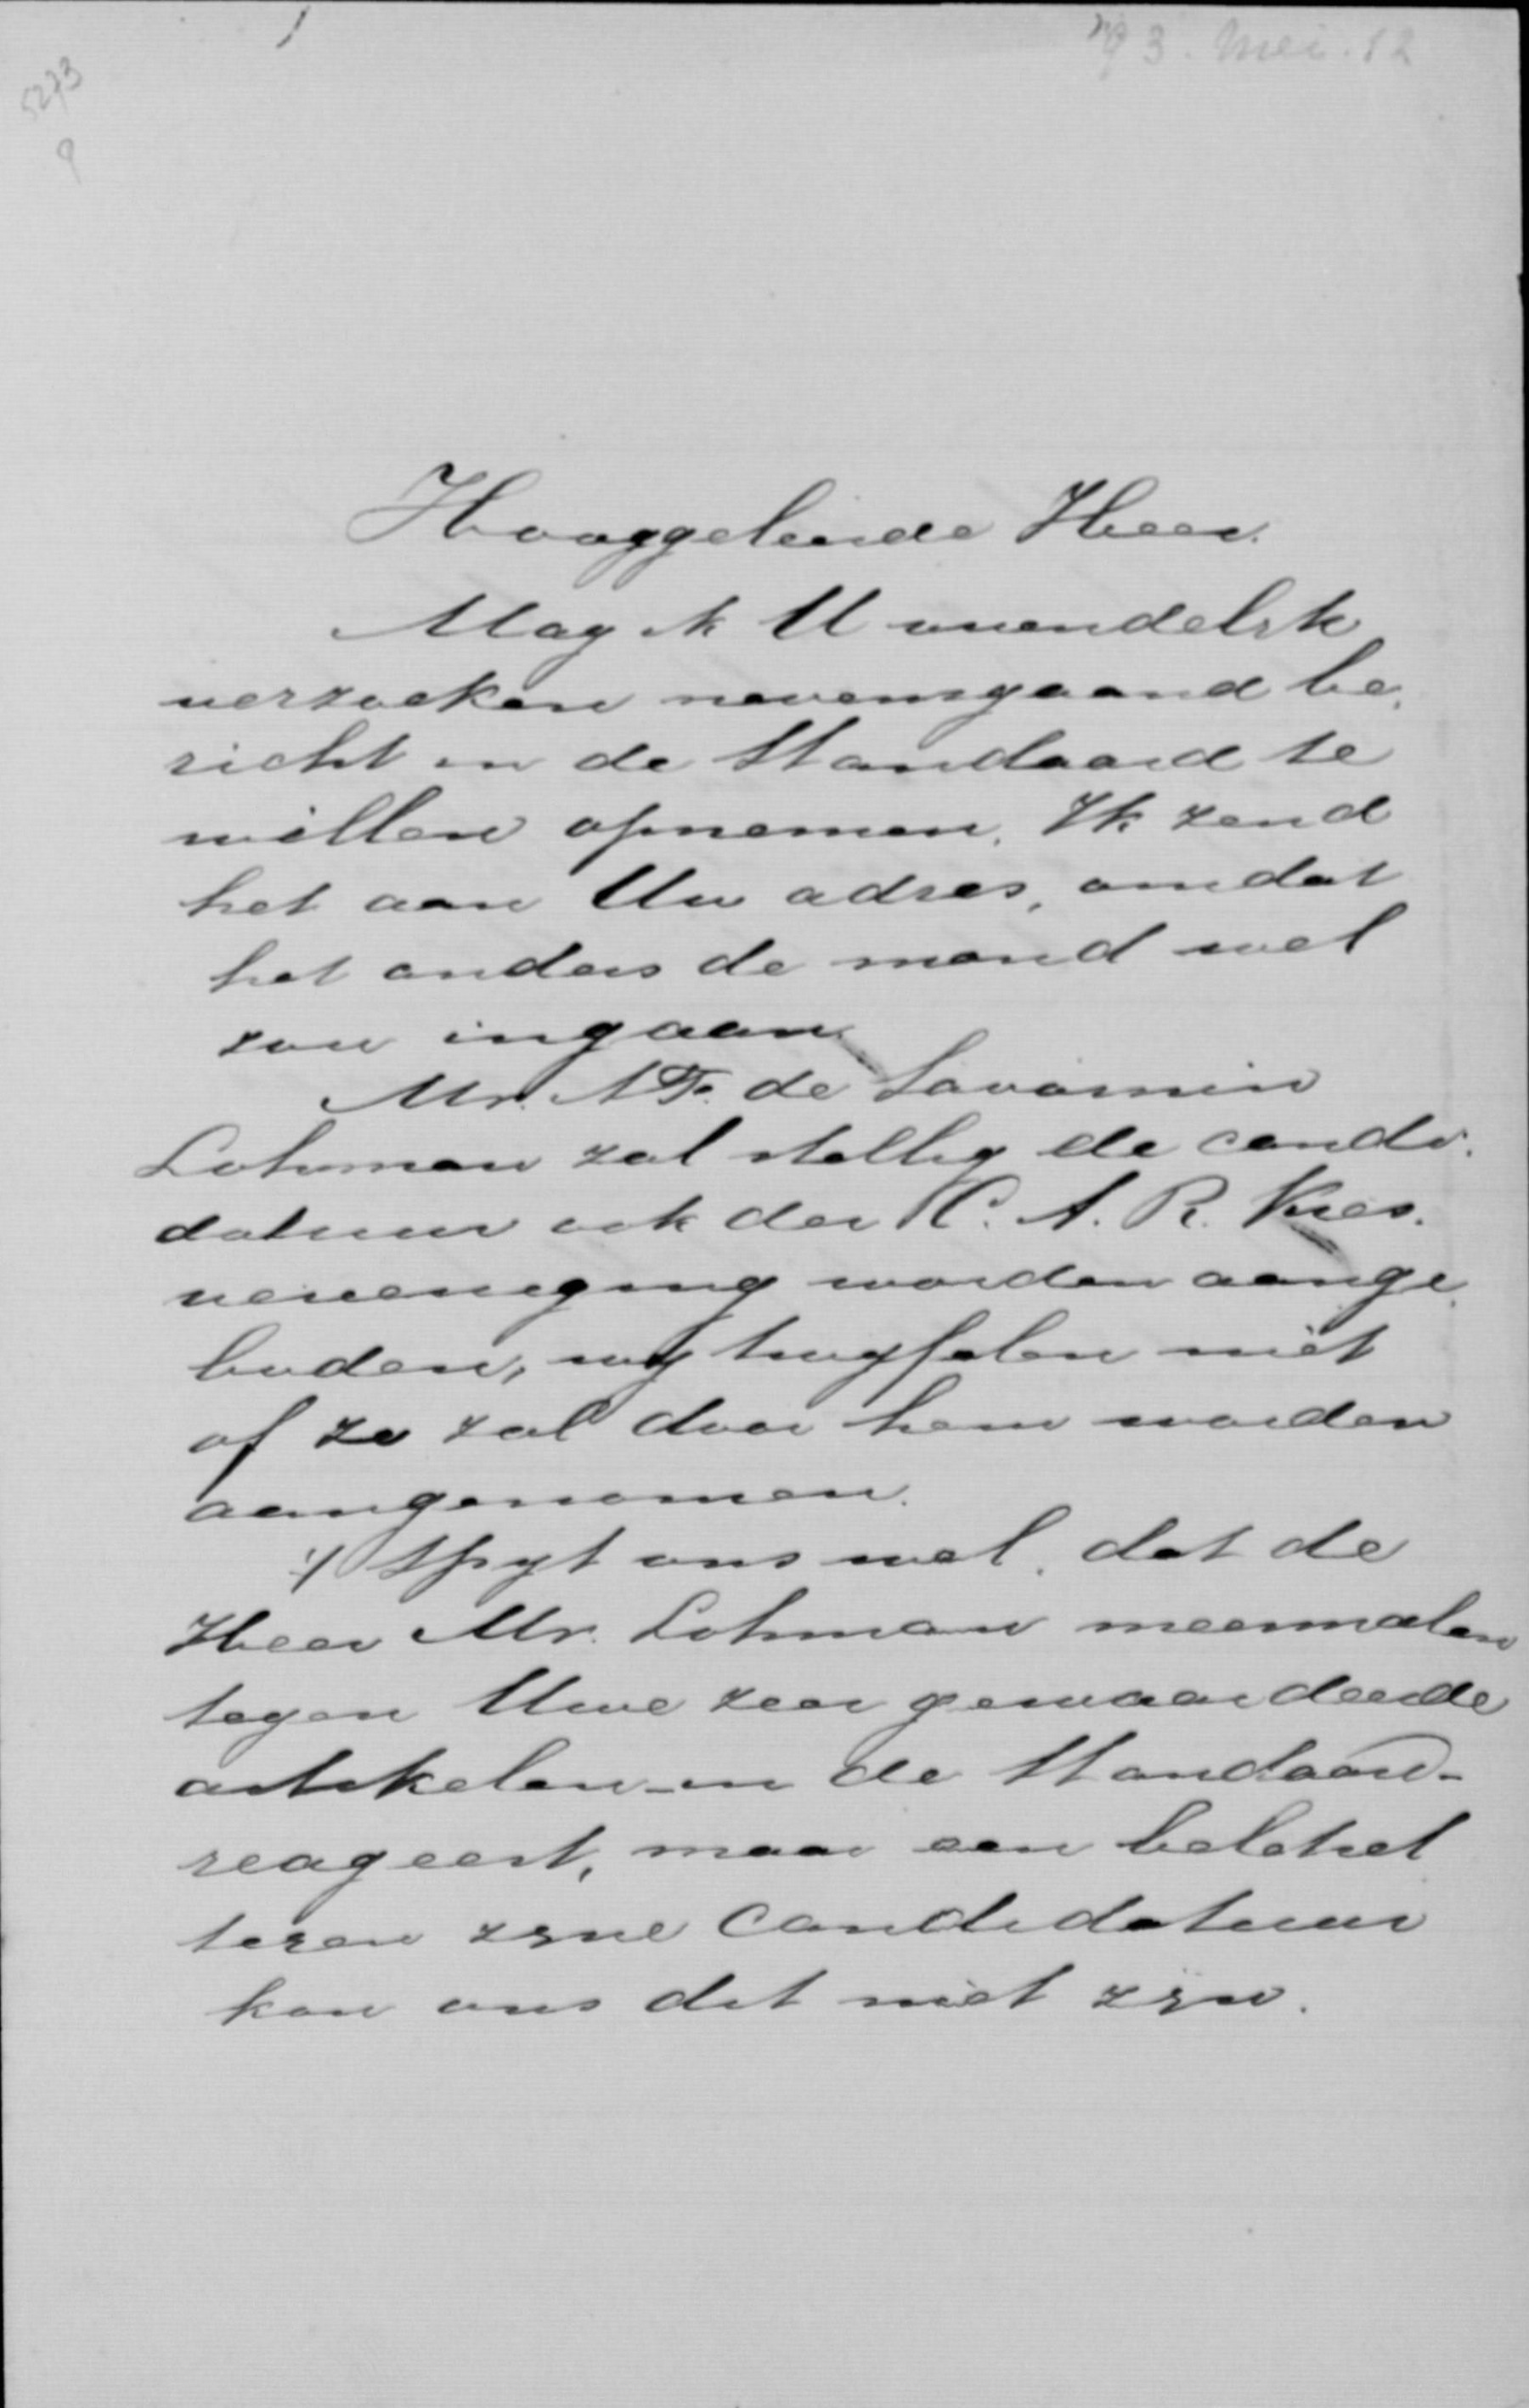 3. Mei. 12
5273
9
Hooggeleerde Heer.
Mag ik U vriendelijk
verzoeken nevensgaand be-
richt in de Standaard te
willen opnemen. Ik zend
het aan Uw adres, omdat
het anders de mand wel
zou ingaan.
Mr. A F. de Savornin
Lohman zal stellig de candi-
datuur ook der C. A. R. Kies.
vereeniging worden aange
boden, wij twyfelen niet
of ze zal door hem worden
aangenomen.
't Spyt ons wel, dat de
Heer Mr. Lohman meermalen
tegen Uwe zeer gewaardeerde
artikelen in de Standaard -
reageert, maar een beletsel
tegen zijne Candidatuur
kan ons dit niet zijn.